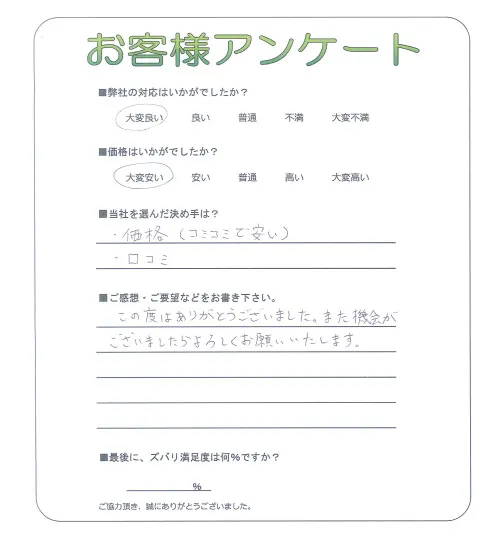 お客様アンケート
■弊社の対応はいかがでしたか？
大変良い 良い 普通 不満 大変不満
■価格はいかがでしたか？
大変安い 安い 普通 高い 大変高い
■当社を選んだ決め手は？
・価格（コミコミで安い）
・口コミ
■ご感想・ご要望などをお書き下さい。
この度はありがとうございました。また機会が
ございましたらよろしくお願いいたします。
■最後に、ズバリ満足度は何％ですか？
％
ご協力頂き、誠にありがとうございました。